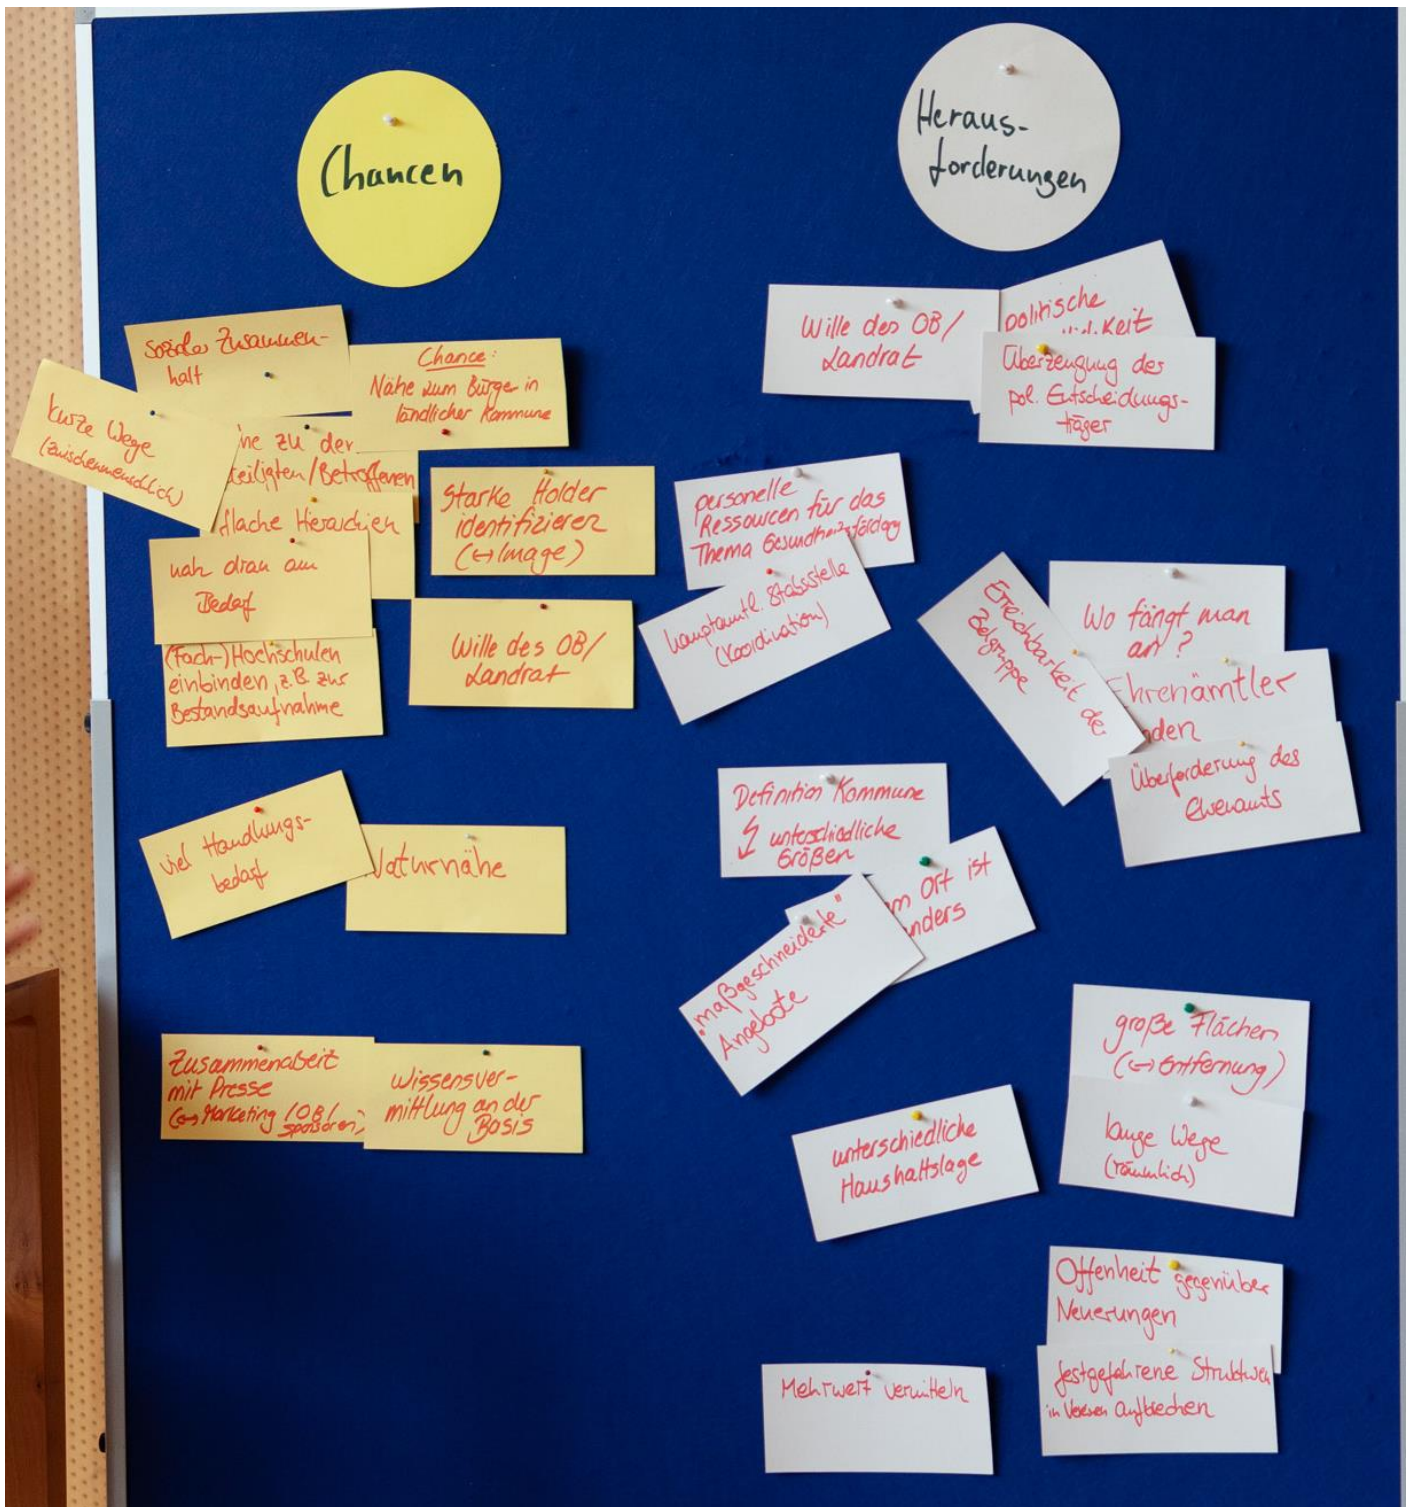 Chancen
Heraus-
forderungen
Sozialer Zusammen-
halt
Chance:
Nähe zum Bürger in
ländlicher Kommune
kurze Wege
(zwischenmenschlich)
zu der
/Betroffenen
flache Hierarchien
nah dran am
Bedarf
(Fach-)Hochschulen
einbinden, z.B. zur
Bestandsaufnahme
Starke Holder
identifizieren
(↔Image)
Wille des OB/
Landrat
viel Handlungs-
bedarf
Naturnähe
Zusammenarbeit
mit Presse
(↔ Marketing / OB /
Sponsoren)
Wissensver-
mittlung an der
Basis
Wille des OB/
Landrat
politische
Überzeugung des
pol. Entscheidungs-
träger
personelle
Ressourcen für das
Thema Gesundheitsförderg
hauptamtl. Stabsstelle
(Koordination)
Erreichbarkeit der
Zielgruppe
Wo fängt man
an?
Ehrenämtler
Überforderung des
Ehrenamts
Definition Kommune
↯ unterschiedliche
Größen
Ort ist
anders
"maßgeschneiderte"
Angebote
große Flächen
(↔ Entfernung)
lange Wege
(räumlich)
unterschiedliche
Haushaltslage
Offenheit gegenüber
Neuerungen
festgefahrene Strukturen
in Vereinen aufbrechen
Mehrwert vermitteln